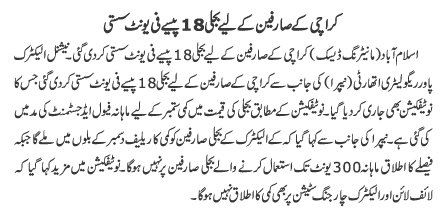 کراچی کے صارفین کے لیے بجلی 18 پیسے فی یونٹ سستی
اسلام آباد (مانیٹرنگ ڈیسک) کراچی کے صارفین کے لیے بجلی 18 پیسے فی یونٹ سستی کردی گئی، نیشنل الیکٹرک
پاور ریگولیٹری اتھارٹی (نیپرا) کی جانب سے کراچی کے صارفین کے لیے بجلی 18 پیسے فی یونٹ سستی کردی گئی جس کا
نوٹیفکیشن بھی جاری کردیا گیا۔ نوٹیفکیشن کے مطابق بجلی کی قیمت میں کمی ستمبر کے لیے ماہانہ فیول ایڈجسٹمنٹ کی مد میں
کی گئی ہے۔ نیپرا کی جانب سے کہا گیا کہ کے الیکٹرک کے صارفین کو کمی کا ریلیف دسمبر کے بلوں میں ملے گا جبکہ
فیصلے کا اطلاق ماہانہ 300 یونٹ تک استعمال کرنے والے بجلی صارفین پر نہیں ہوگا۔ نوٹیفکیشن میں مزید کہا گیا کہ
لائف لائن اور الیکٹرک چارجنگ سٹیشن پر بھی کمی کا اطلاق نہیں ہوگا۔